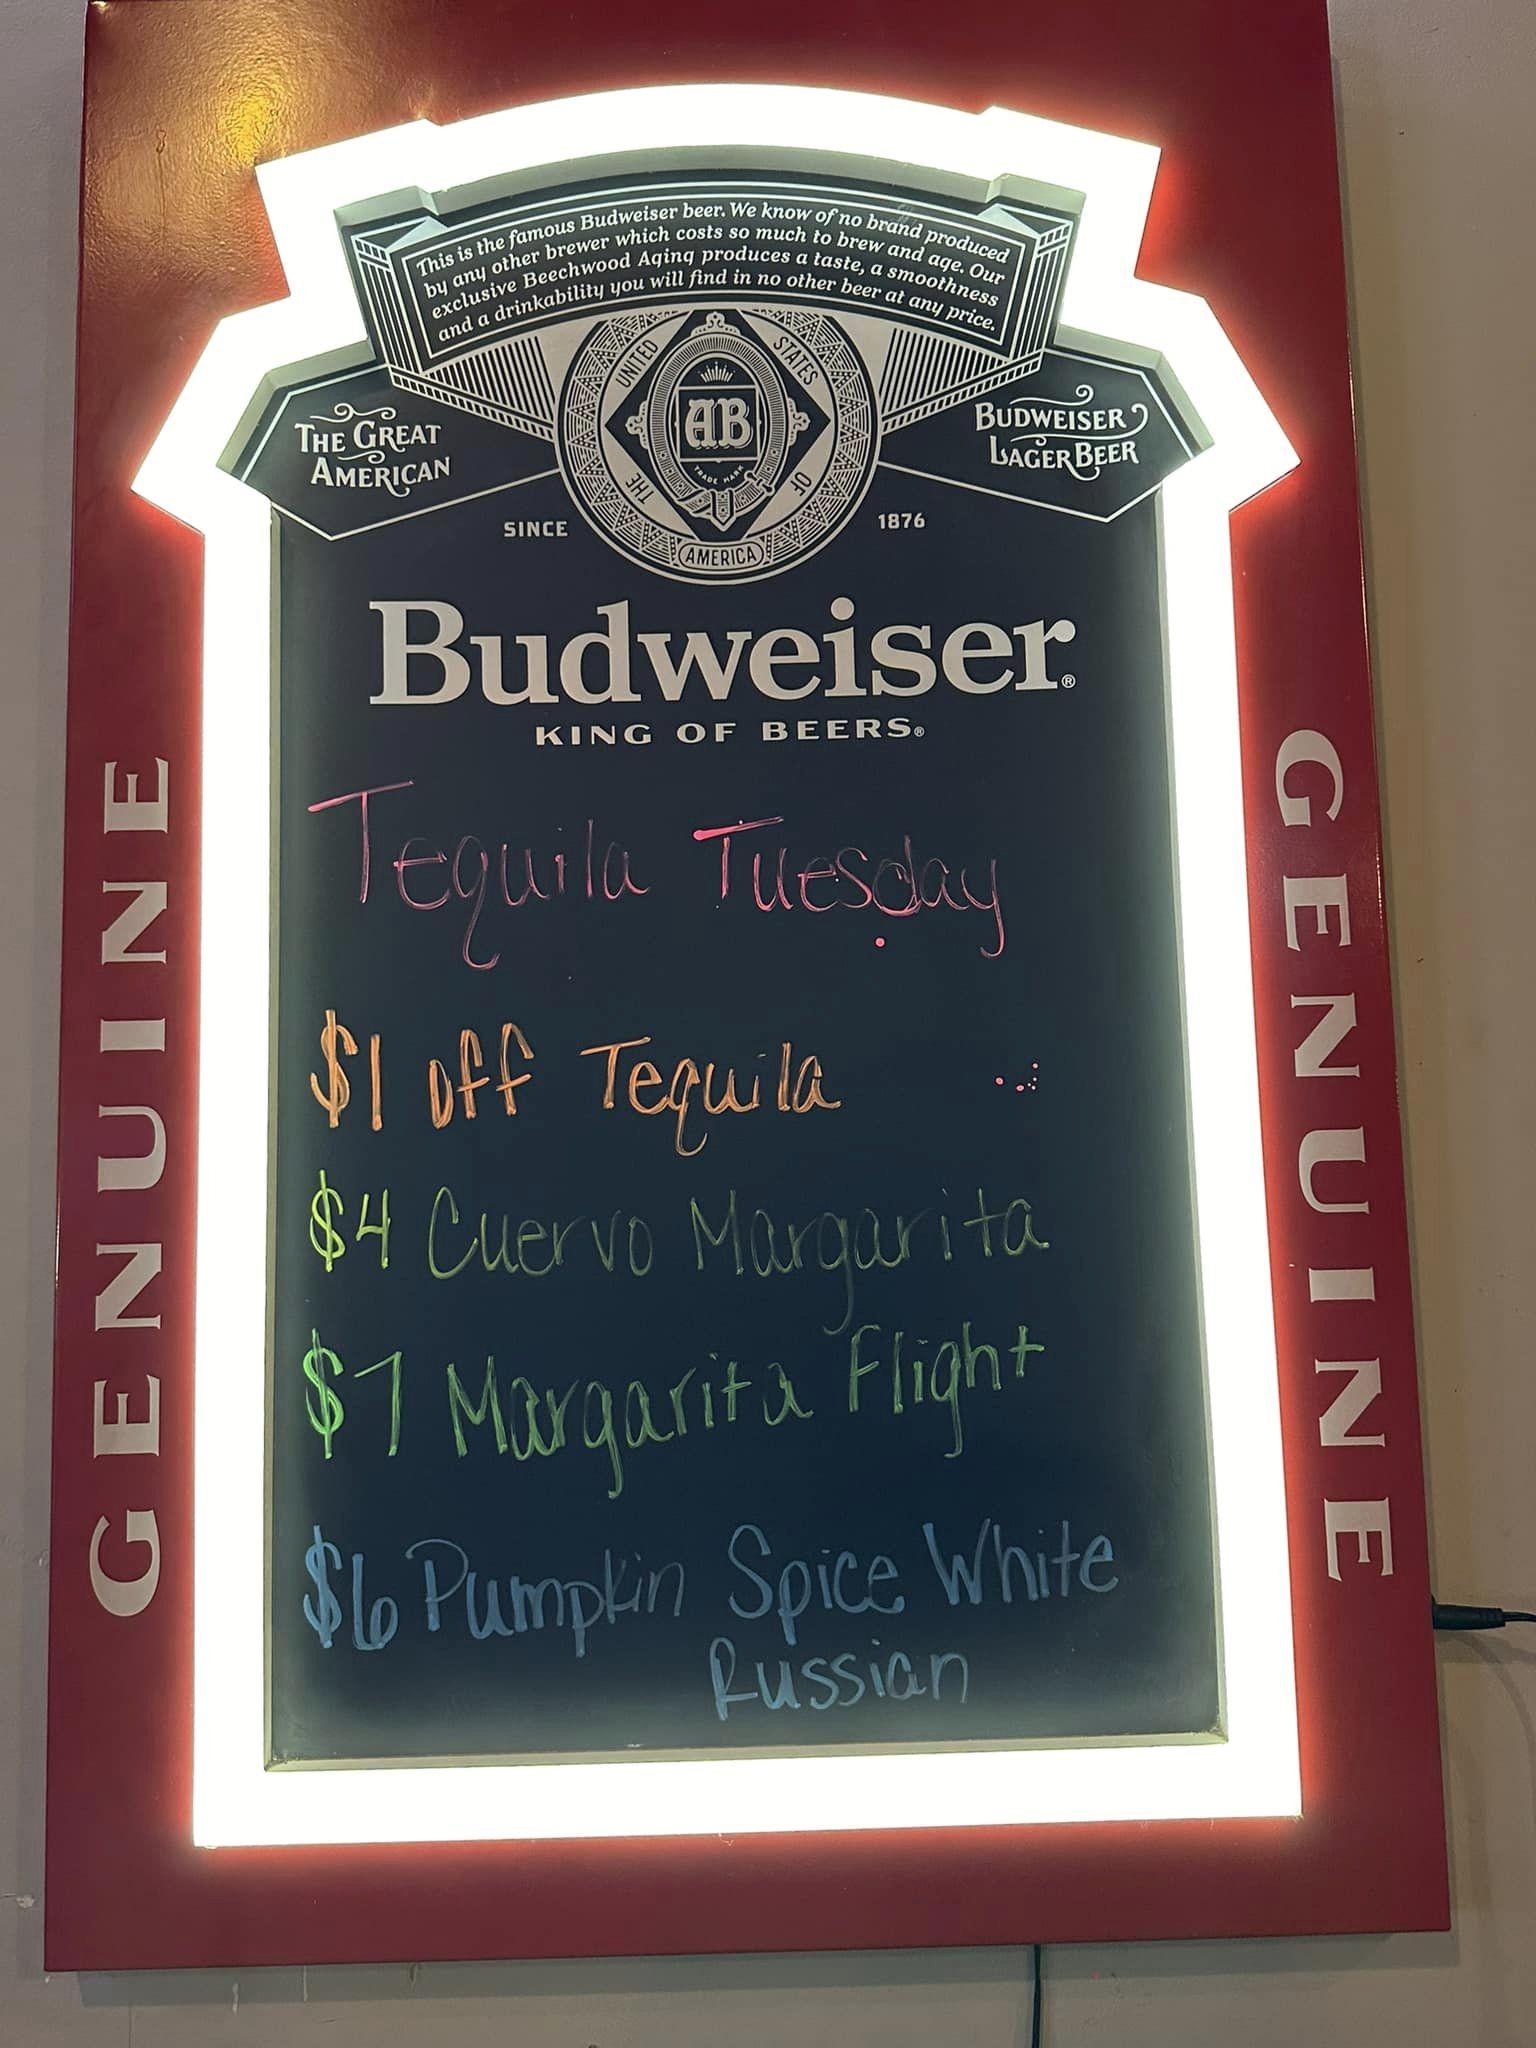 This is the famous Budweiser beer. We know of no brand produced
by any other brewer which costs so much to brew and age. Our
exclusive Beechwood Aging produces a taste, a smoothness
and a drinkability you will find in no other beer at any price.
UNITED STATES OF AMERICA THE
AB
TRADE MARK
THE GREAT
AMERICAN
BUDWEISER
LAGER BEER
SINCE 1876
Budweiser®
KING OF BEERS®
GENUINE GENUINE
GENUINE GENUINE
Tequila Tuesday
$1 off Tequila
$4 Cuervo Margarita
$7 Margarita Flight
$6 Pumpkin Spice White
Russian